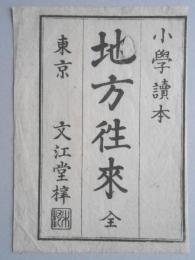 小學讀本
地方徃來 全
東京 文江堂梓